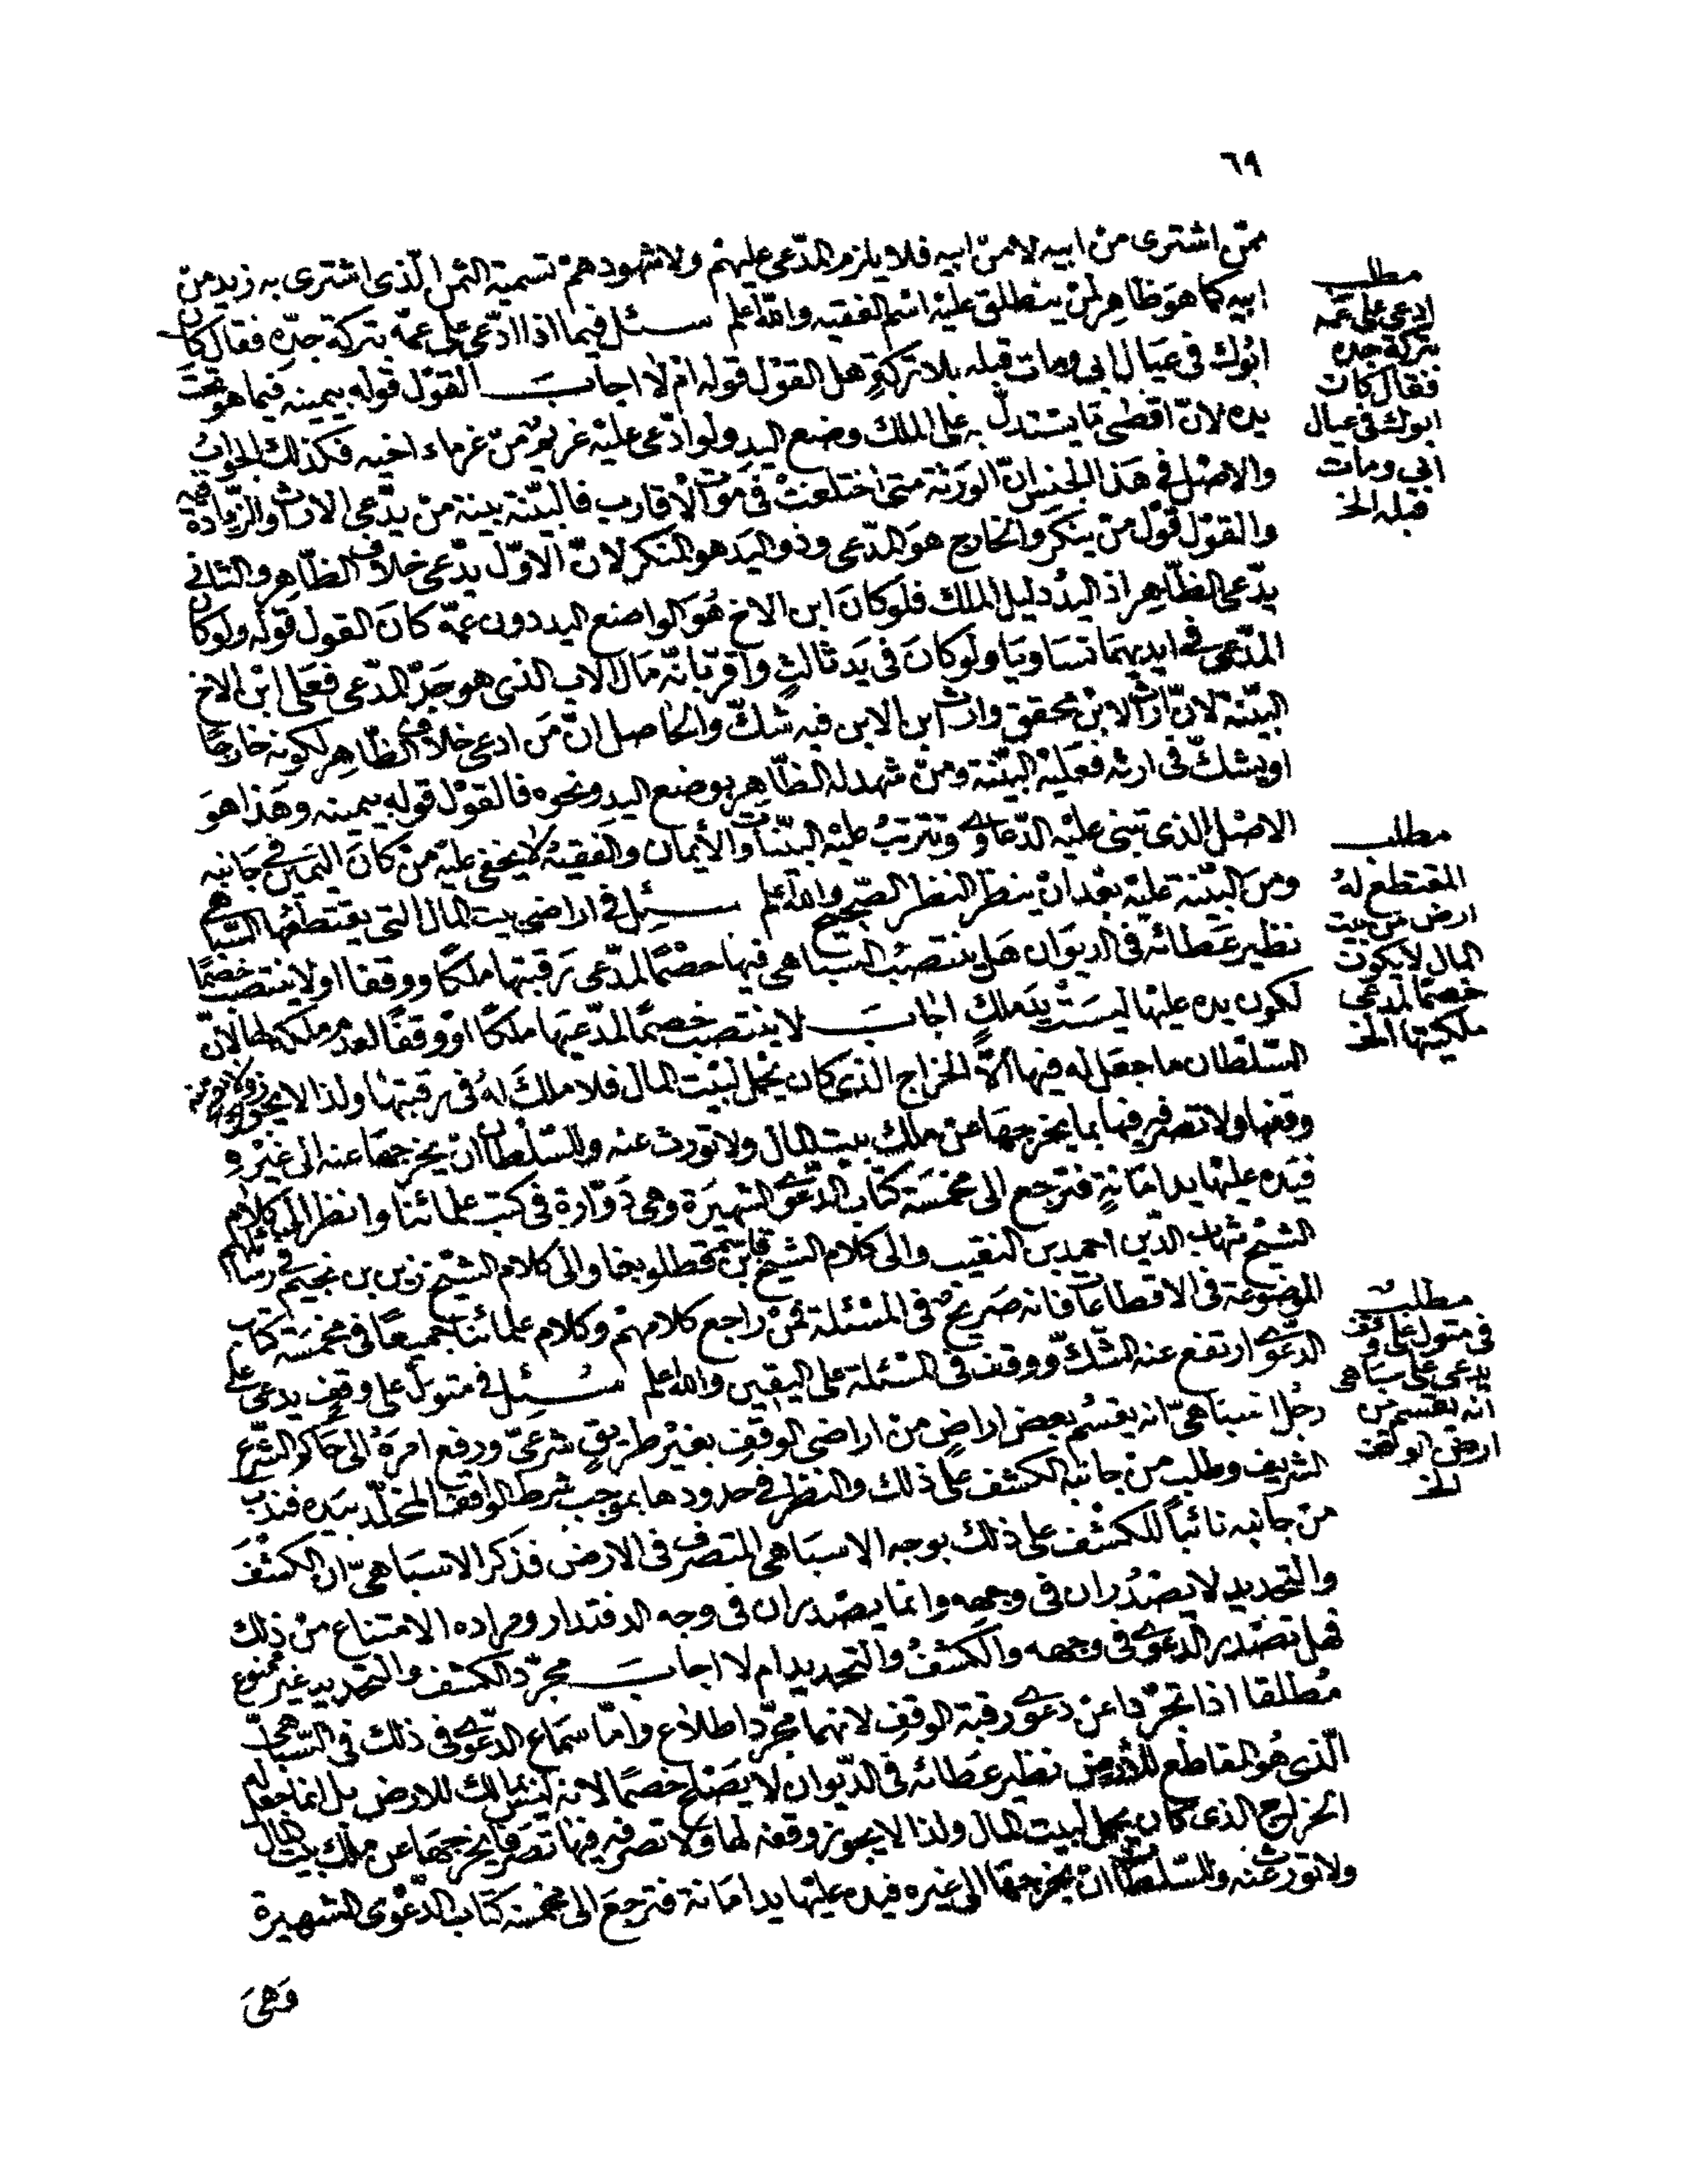 ٦٩
ممّن اشترى من ابيه لا من ابيه فلا يلزم المدّعى عليهم ولا شهودهم تسمية الثمن الّذى اشترى به زيد من
ابيه كما هو ظاهر لمن ينطلق عليه اسم الفقيه والله اعلم سئل فيما اذا ادّعى على عمّه بتركة جدّه فقال كان
ابوك فى عيال ابى ومات قبله بلا تركة هل القول قوله ام لا اجاب القول قوله بيمينه فيما هو تحت
يده لانّ اقطى ما يستدلّ به على الملك وضع اليد ولو ادّعى عليه غريم من غرماء اخيه فكذلك الجواب
والاصل فى هذا الجنس انّ الورثة متى اختلفت فى موت الاقارب فالبيّنة بينة من يدّعى الارث والزيادة
والقول قول من ينكر والخارج هو المدّعى وذو اليد هو المنكر لانّ الاوّل يدّعى خلاف الظّاهر والثانى
يدّعى الظّاهر اذ اليد دليل الملك فلو كان ابن الاخ هو الواضع اليد دون عمّه كان القول قوله ولو كان
المدّعى فى ايديهما تساويا ولو كان فى يد ثالث واقرّ بانّه مال الاب الذى هو جدّ المدّعى فعلى ابن الاخ
البيّنة لانّ ارث الابن محقق وارث ابن الابن فيه شكّ والحاصل انّ من ادعى خلاف الظّاهر لكونه خارجًا
او يشكّ فى ارثه فعليه البيّنة ومن شهد له الظّاهر بوضع اليد ونحوه فالقول قوله بيمينه وهذا هو
الاصل الذى تبنى عليه الدّعاوى وتترتب عليه البيّنات والأيمان والفقيه لا يخفى عليه من كان اليمين فى جانبه
ومن البيّنة عليه بعد ان ينظر النظر الصّحيح والله اعلم سئل فى اراضى بيت المال التى يقتطعها السّباهى
نظير عطائه فى الديوان هل ينتصب السباهى فيها خصمًا لمدّعى رقبتها ملكًا ووقفا اولا ينتصب خصمًا
لكون يده عليها ليست يد ملك اجاب لا ينتصب خصمًا لمدّعيها ملكًا او وقفًا لعدم ملكه لها لانّ
السّلطان ما جعل له فيها الّا الخراج الذى كان يحمل لبيت المال فلا ملك له فى رقبتها ولذا لا يجوز
وقفها ولا تصرفه فيها بما يخرجها عن ملك بيت المال ولا تورث عنه وللسّلطان ان يخرجها عنه الى غيره
فيده عليها يد امانة فترجع الى مخمسة كتاب الدّعوى الشهيرة وهى دوّارة فى كتب علمائنا وانظر الى كلام
الشيخ شهاب الدّين احمد بن النقيب والى كلام الشيخ قاسم بن قطلوبغا والى كلام الشيخ زين بن نجيم فى رسائلهم
الموضوعة فى الاقطاعات فانه صريح فى المسئلة فمن راجع كلامهم وكلام علمائنا جميعًا فى مخمسة كتاب
الدعوى ارتفع عنه الشكّ ووقف فى المسئلة على اليقين والله اعلم سئل فى متولّ على وقف يدعى على
رجل اسباهىّ انه يقسم بعض اراض من اراضى الوقف بغير طريق شرعىّ ورفع امره الى حاكم الشّرع
الشريف وطلب من جانبه الكشف على ذلك والنظر فى حدودها بموجب شرط الواقف المخلّد بيده فندب
من جانبه نائبًا للكشف على ذلك بوجه الاسباهى المتصرف فى الارض فذكر الاسباهىّ ان الكشف
والتحديد لا يصدران فى وجهه وانما يصدران فى وجه الدفتدار ومراده الامتناع من ذلك
فهل تصدر الدعوى فى وجهه والكشف والتحديد ام لا اجاب مجرّد الكشف والتحديد غير ممنوع
مطلقا اذا تجرّدا عن دعوى رقبة الوقف لانهما مجرّد اطلاع وامّا سماع الدّعوى فى ذلك فى السّباهىّ
الّذى هو المقاطع للأرض نظير عطائه فى الدّيوان لا يصلح خصمًا لانه ليس بمالك للارض بل انما جعل له
الخراج الذى كان يحمل لبيت المال ولذا لا يجوز وقفه لها ولا تصرفه فيها تصرفا يخرجها عن ملك بيت المال
ولا تورث عنه وللسّلطان ان يخرجها الى غيره فيده عليها يد امانة فترجع الى مخمسة كتاب الدّعوى الشهيرة
وهى
مطلب
ادعى على عمه
بتركة جده
فقال كان
ابوك فى عيال
ابى ومات
قبله الخ
مطلب
المقتطع له
ارض من بيت
المال لا يكون
خصمًا لمدعى
ملكيتها الخ
مطلب
فى متول على وقف
يدعى على سباهى
انه يقسم من
ارض الوقف
الخ